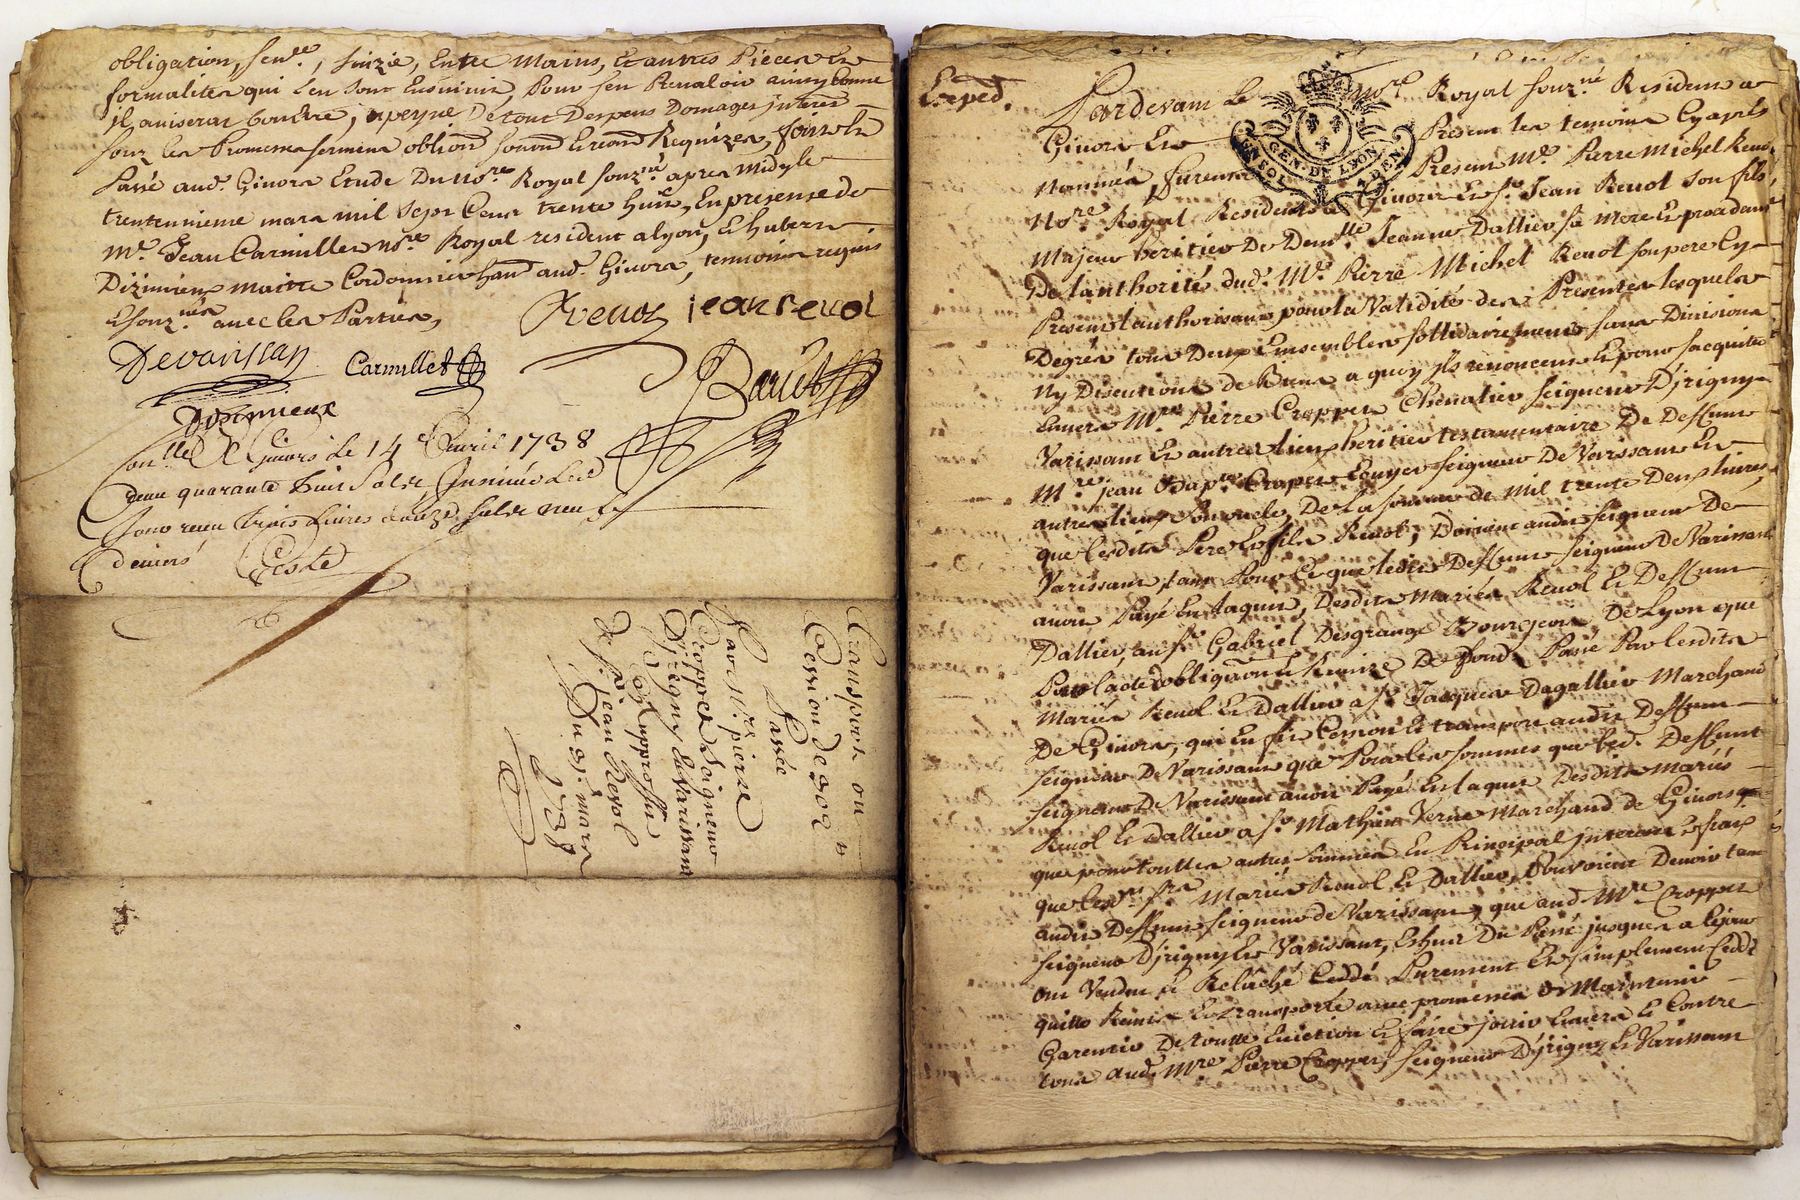 obligation, sen.ce, saizie, Entre Mains, Et autres Pieces Et
formalités qui s'en sont Ensuivis, Pour s'en Prevaloir ainsy comme
Il avisera bon être, a peyne De tous Despens Domages interets
sous les Promesses serment obligõns
Passé aud. Givors Etude Du No.re Royal souz.né apres midy le
trentunieme mars mil sept Cent trente huit, En presence de
M.e Jean Carmillet no.re Royal resident a lyon, Et hubert
Dizimieux maitre Cordonnier hant aud. Givors, temoins requis
Et souz.nés avec les Parties,
Revol jean revol
Devarissan Carmillet
Dizimieux
Baruet
Con.lle A Givors le 14.e Avril 1738
quarante huit Sols, Insinué
trois livres douze sols neuf
deniers
Coste
Transport ou
Cession de 902 #
Passée
Par M.re pierre
Cropper Seigneur
D'irigny et Varissant
Au proffit
de S.r jean Revol
Du 31.e mars
1738
Exped.
Pardevant Le No.re Royal souz.né Resident a
Givors Et Present les temoins Cyaprès
nommés, furent Present M.e Pierre Michel Revol
No.re Royal Resident a Givors Et S.r Jean Revol son fils,
Majeur heritier De Dem.lle Jeanne Dallier sa Mere Et procedant
De l'authorité dud. M.e Pierre Michel Revol son pere Cy
Present l'authorisant pour la Validité des Presentes lesquels
Degrés tous Deux Ensembles sollidairement sans Division
Ny Discution de Biens a quoy Ils renoncent Et pour s'acquiter
Envers M.re Pierre Cropper Chevalier seigneur D'irigny
Varissant Et autres lieux heritier testamentaire De Deffunt
M.re jean Bap.te Croper Ecuyer seigneur De Varissant Et
autres lieux son oncle, De La somme de mil trente Deux livres
que lesdits Pere Et fils Revol, Doivent audit seigneur De
Varissant tant Pour Ce que ledit Deffunt seigneur De Varissant
avoit Payé En l'aquit, Desdits Mariés Revol Et Deffunte
Dallier, au S.r Gabriel Desgrange Bourgeois De Lyon que
Pour l'acte d'obligation Et Remize De fond Passé Par lesdits
Mariés Revol Et Dallier a S.r Jacques Dagallier Marchand
De Givors, qui En fit Cession Et transport audit Deffunt
seigneur De Varissant que Pour les sommes que led. Deffunt
seigneur De Varissant avoit Payé En l'aquit Desdits Mariés
Revol Et Dallier a S.r Mathieu Verne Marchand de Givors
que pour touttes autres sommes En Principal interets Et frais
que lesd. Mariés Revol Et Dallier, Pouvoient Devoir tant
audit Deffunt seigneur de Varissant, que aud. M.re Cropper
seigneur D'irigny Et Varissant, Echuts Du Passé jusques a Ce jour
ont Vendu Et Relaché Ceddé Purement Et simplement Cedde
quitte Remis Et transporte avec promesses De Maintenir
Garentir De toutte Eviction Et faire jouir Envers Et Contre
tous aud. M.re Pierre Cropper, seigneur D'irigny Et Varissant